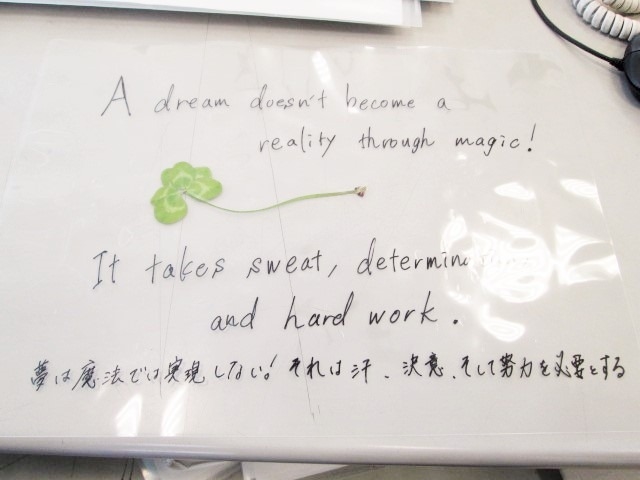 A dream doesn't become a
reality through magic!
It takes sweat, determination
and hard work.
夢は魔法では実現しない!それは汗、決意、そして努力を必要とする